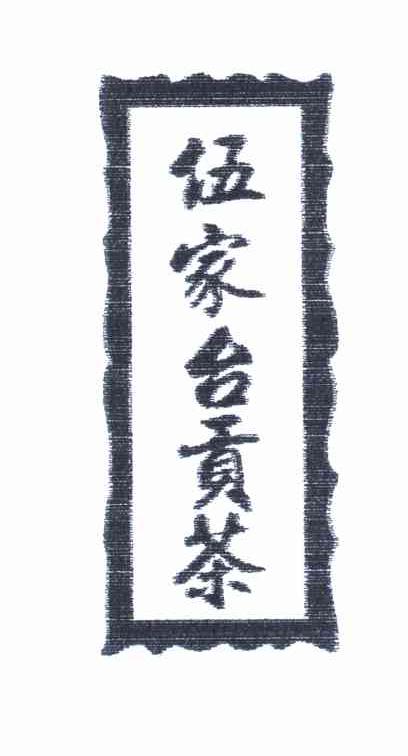 伍家台貢茶